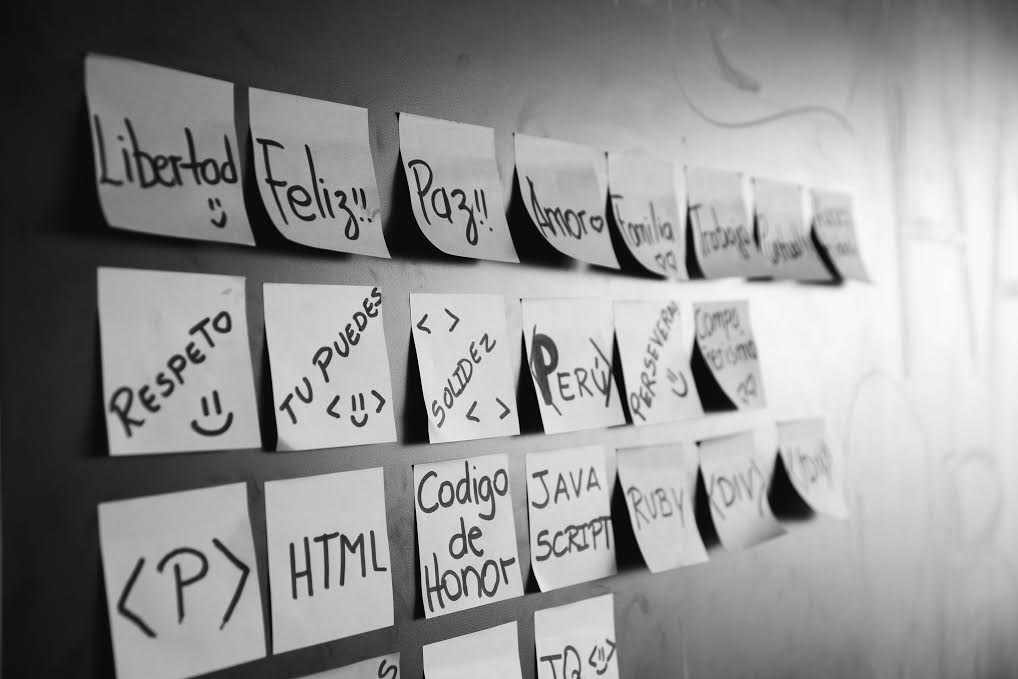 Libertad
Feliz!!
Paz!!
Amor
Familia
Trabajo
RESPETO
TU PUEDES
< >
SOLIDEZ
< >
PERÚ
PERSEVERA
<P>
HTML
Codigo
de
Honor
JAVA
SCRIPT
RUBY
<DIV>
TQ